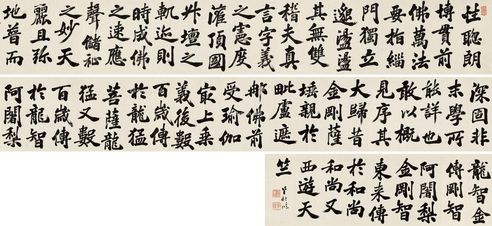 性聰朗
博貫前
佛萬法
要指緇
門獨立
邈盪盪
其無雙
稽夫真
言字義
之憲度
灌頂國
升壇之
軌迹則
時成佛
之速應
聲儲祉
之妙天
麗且弥
地普而
深固非
末學所
能詳也
敢以概
見序其
大歸昔
金剛薩
埵親於
毗盧遮
那佛前
受瑜伽
最上乘
義後數
百歲傳
於龍猛
菩薩龍
猛又數
百歲傳
於龍智
阿闍梨
龍智金
傳剛智
金剛智
阿闍梨
東来傳
於和尚
和尚又
西遊天
竺